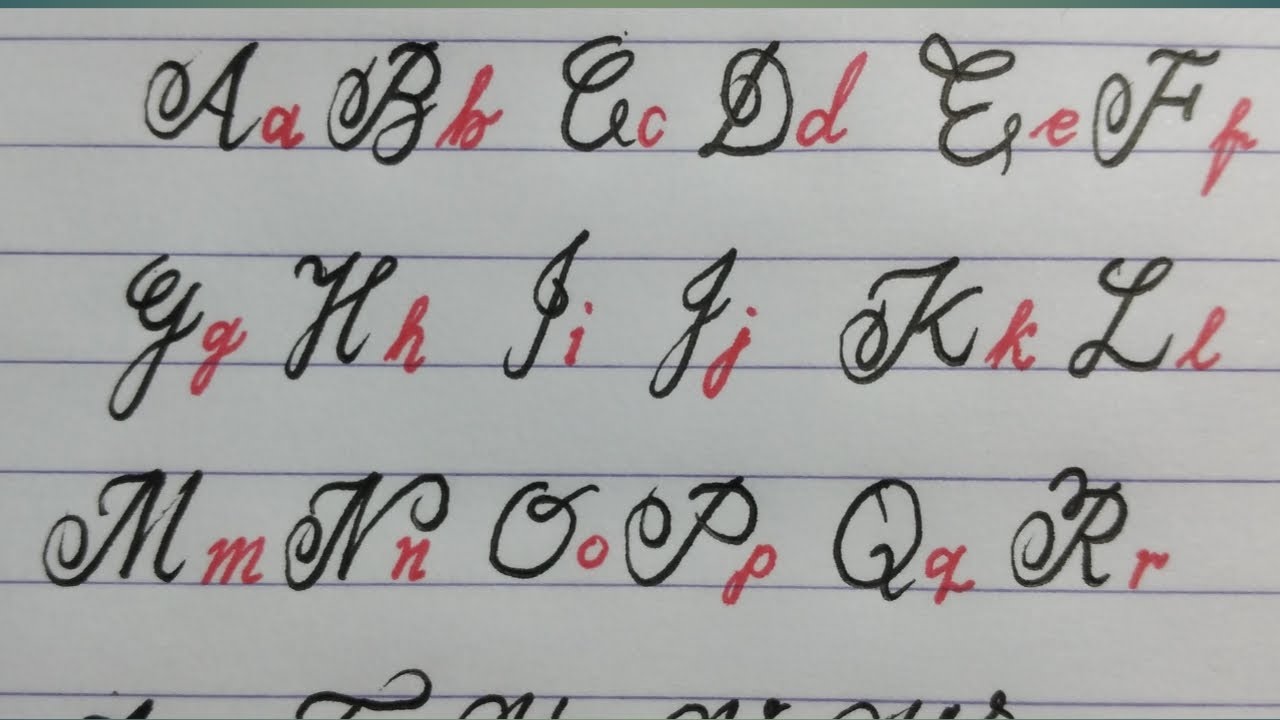 Aa Bb Cc Dd Ee Ff
Gg Hh Ii Jj Kk Ll
Mm Nn Oo Pp Qq Rr